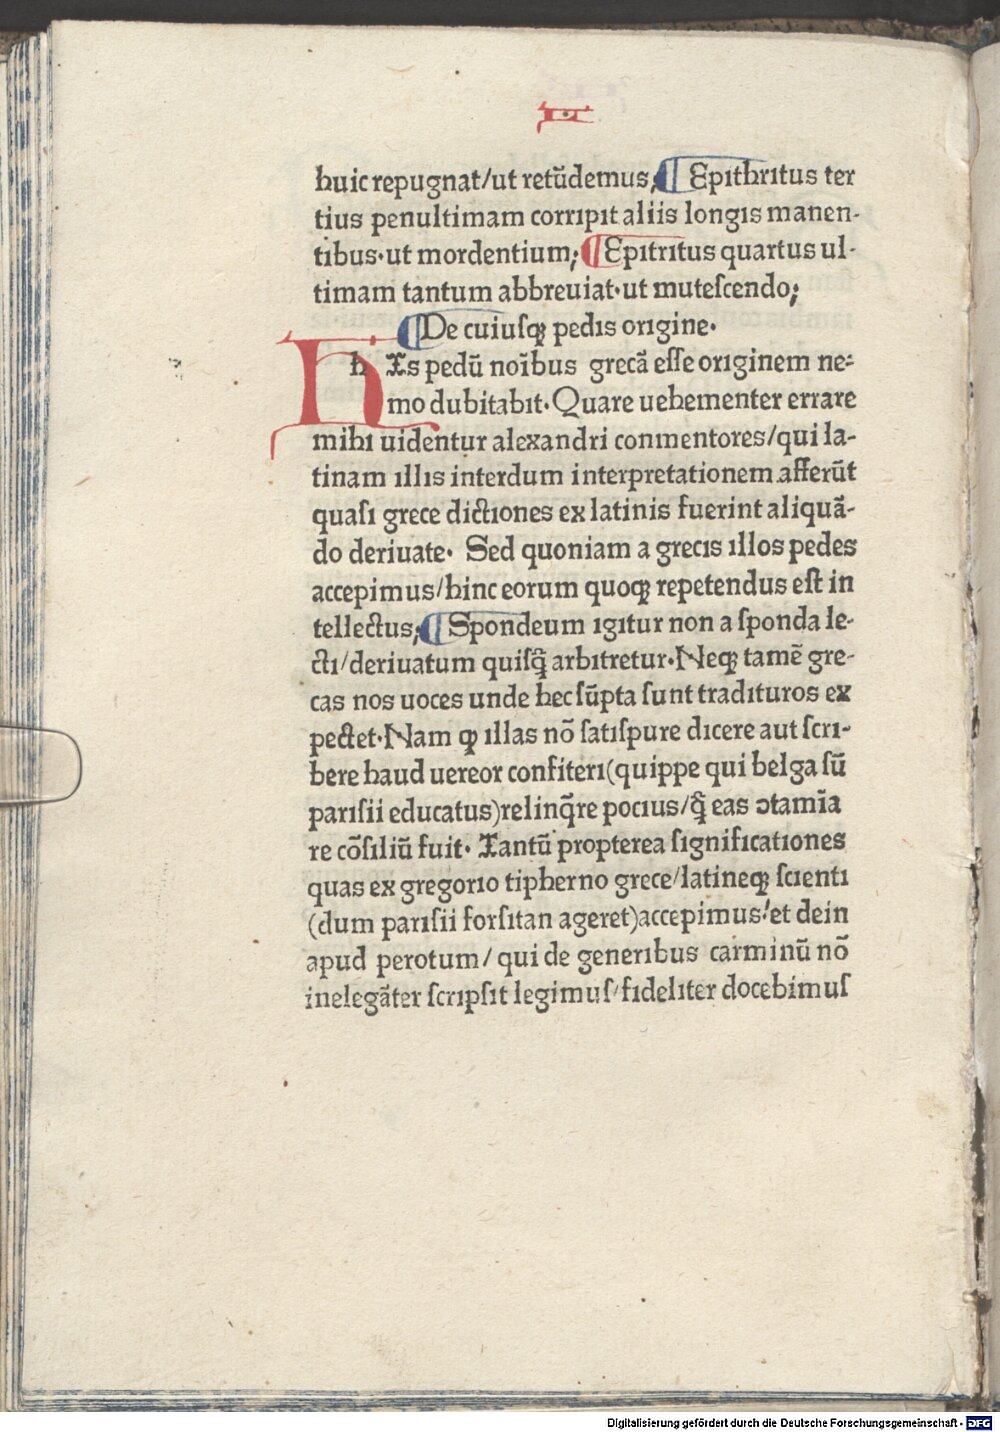 L
huic repugnat/ut retūdemus; Epithritus ter
tius penultimam corripit aliis longis manen-
tibus·ut mordentium; Epitritus quartus ul-
timam tantum abbreuiat·ut muteſcendo;
De cuiuſqꝫ pedis origine·
h Is pedū noībus grecā eſſe originem ne-
mo dubitabit·Quare uehementer errare
mihi uidentur alexandri conmentores/qui la-
tinam illis interdum interpretationem afferūt
quaſi grece dictiones ex latinis fuerint aliquā-
do deriuate· Sed quoniam a grecis illos pedes
accepimus/hinc eorum quoqꝫ repetendus eſt in
tellectus; Spondeum igitur non a ſponda le-
cti/deriuatum quiſq̄ arbitretur·Neqꝫ tamē gre-
cas nos uoces unde hec ſūpta ſunt tradituros ex
pectet·Nam ꝙ illas nō ſatiſpure dicere aut ſcri-
bere haud uereor confiteri(quippe qui belga ſū
pariſii educatus)relinq̄re pocius/q̄ eas ↄtamīa
re cōſiliū fuit· Tantū propterea ſignificationes
quas ex gregorio tipherno grece/latineqꝫ ſcienti
(dum pariſii forſitan ageret)accepimus·/et dein
apud perotum/ qui de generibus carminū nō
inelegāter ſcripſit legimuſ/fideliter docebimuſ
Digitalisierung gefördert durch die Deutsche Forschungsgemeinschaft - DFG